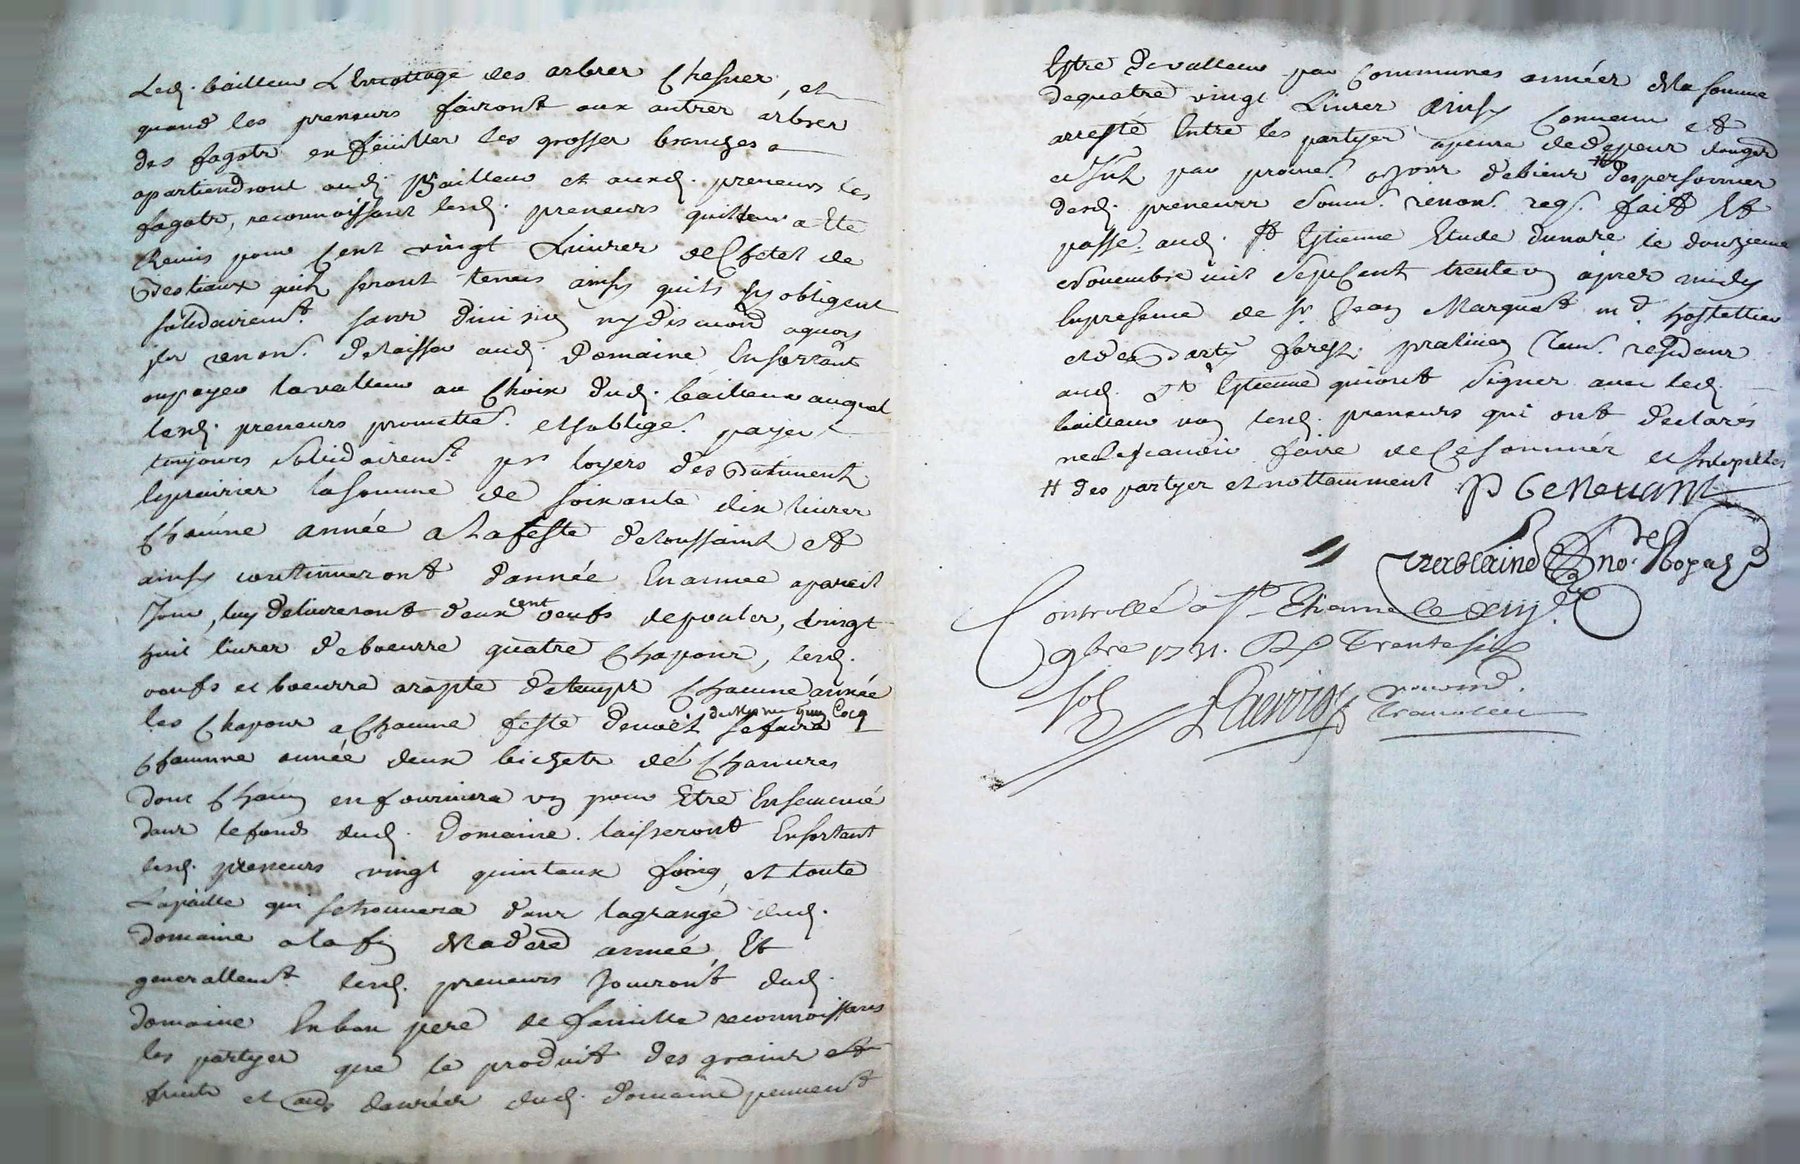 Led. bailleur L'Emottage des arbres Chesnes, et
quand les preneurs fairont aux autres arbres
des fagots en feüilles les grosses branches
apartiendront aud. Bailleur et auxd. preneurs les
fagots, reconnoissant lesd. preneurs quil leur a Ete
Remis pour Cent vingt Livres de Chetel de
Bestiaux quils seront tenus ainsy quils sy obligent
solidairemt. sans division ny discution aquoy
ils renons. delaisser aud. domaine En sortant
ou payer la valleur au Choix dud. bailleur auquel
lesd. preneurs promettes. et sobliges. payer
toujours solidairemt. pr. loyers des Batiments
les prairies la somme de soixante dix livres
Chacune année a la feste de toussaint et
ainsy continueront d'année En année a pareil
Jour, luy delivreront deux cent oeufs de poules, vingt
huit livres de boeurre quatre Chapons, lesd.
oeufs et boeurre de temps Chacune année
les Chapons a Chacune feste de noël se faira
Chacune année deux bichets de Chanvres
dont Chacun en fournira un pour Etre Ensemencé
dans le fonds dud. Domaine. laisseront En sortant
lesd. preneurs vingt quintaux foing, et toute
La paille qui se trouvera dans la grange dud.
domaine a la fin de la dere. année, Et
generallemt. lesd. preneurs Jouiront dud.
domaine En bon pere de famille reconnoissants
les partyes que le produit des grains et
fruits et denrées dud. domaine peuvent
Estre de valleur par Communes années de la somme
de quatre vingt Livres Ainsy Convenu et
arresté Entre les partyes a peine de
par promes. de biens des personnes
desd. preneurs soum. renons. reg. fait Et
passé aud. St Estienne Etude du nore. le douzieme
Novembre mil sept Cent trente un apres midy
En presence de sr. Jean Marquet md. hostellier
et de Barty. Forest praticien residants
aud. St Estienne qui ont signer avec led.
bailleur non lesd. preneurs qui ont declarés
ne le scavoir faire de Ce sommés et Interpelles
# des partyes et nottamment P Genevant
no. Royal
Controllé a St. Etienne le xiij
9bre 1731. R. Trente six
sols